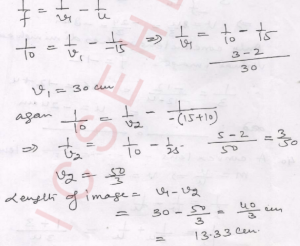 1/f = 1/v - 1/u
1/10 = 1/v₁ - 1/-15 ⇒ 1/v₁ = 1/10 - 1/15
3-2/30
v₁ = 30 cm
agan 1/10 = 1/v₂ - 1/-(15+10)
⇒ 1/v₂ = 1/10 - 1/25 5-2/50 = 3/50
v₂ = 50/3
Length of image = v₁-v₂
= 30 - 50/3 = 40/3 cm
= 13.33 cm